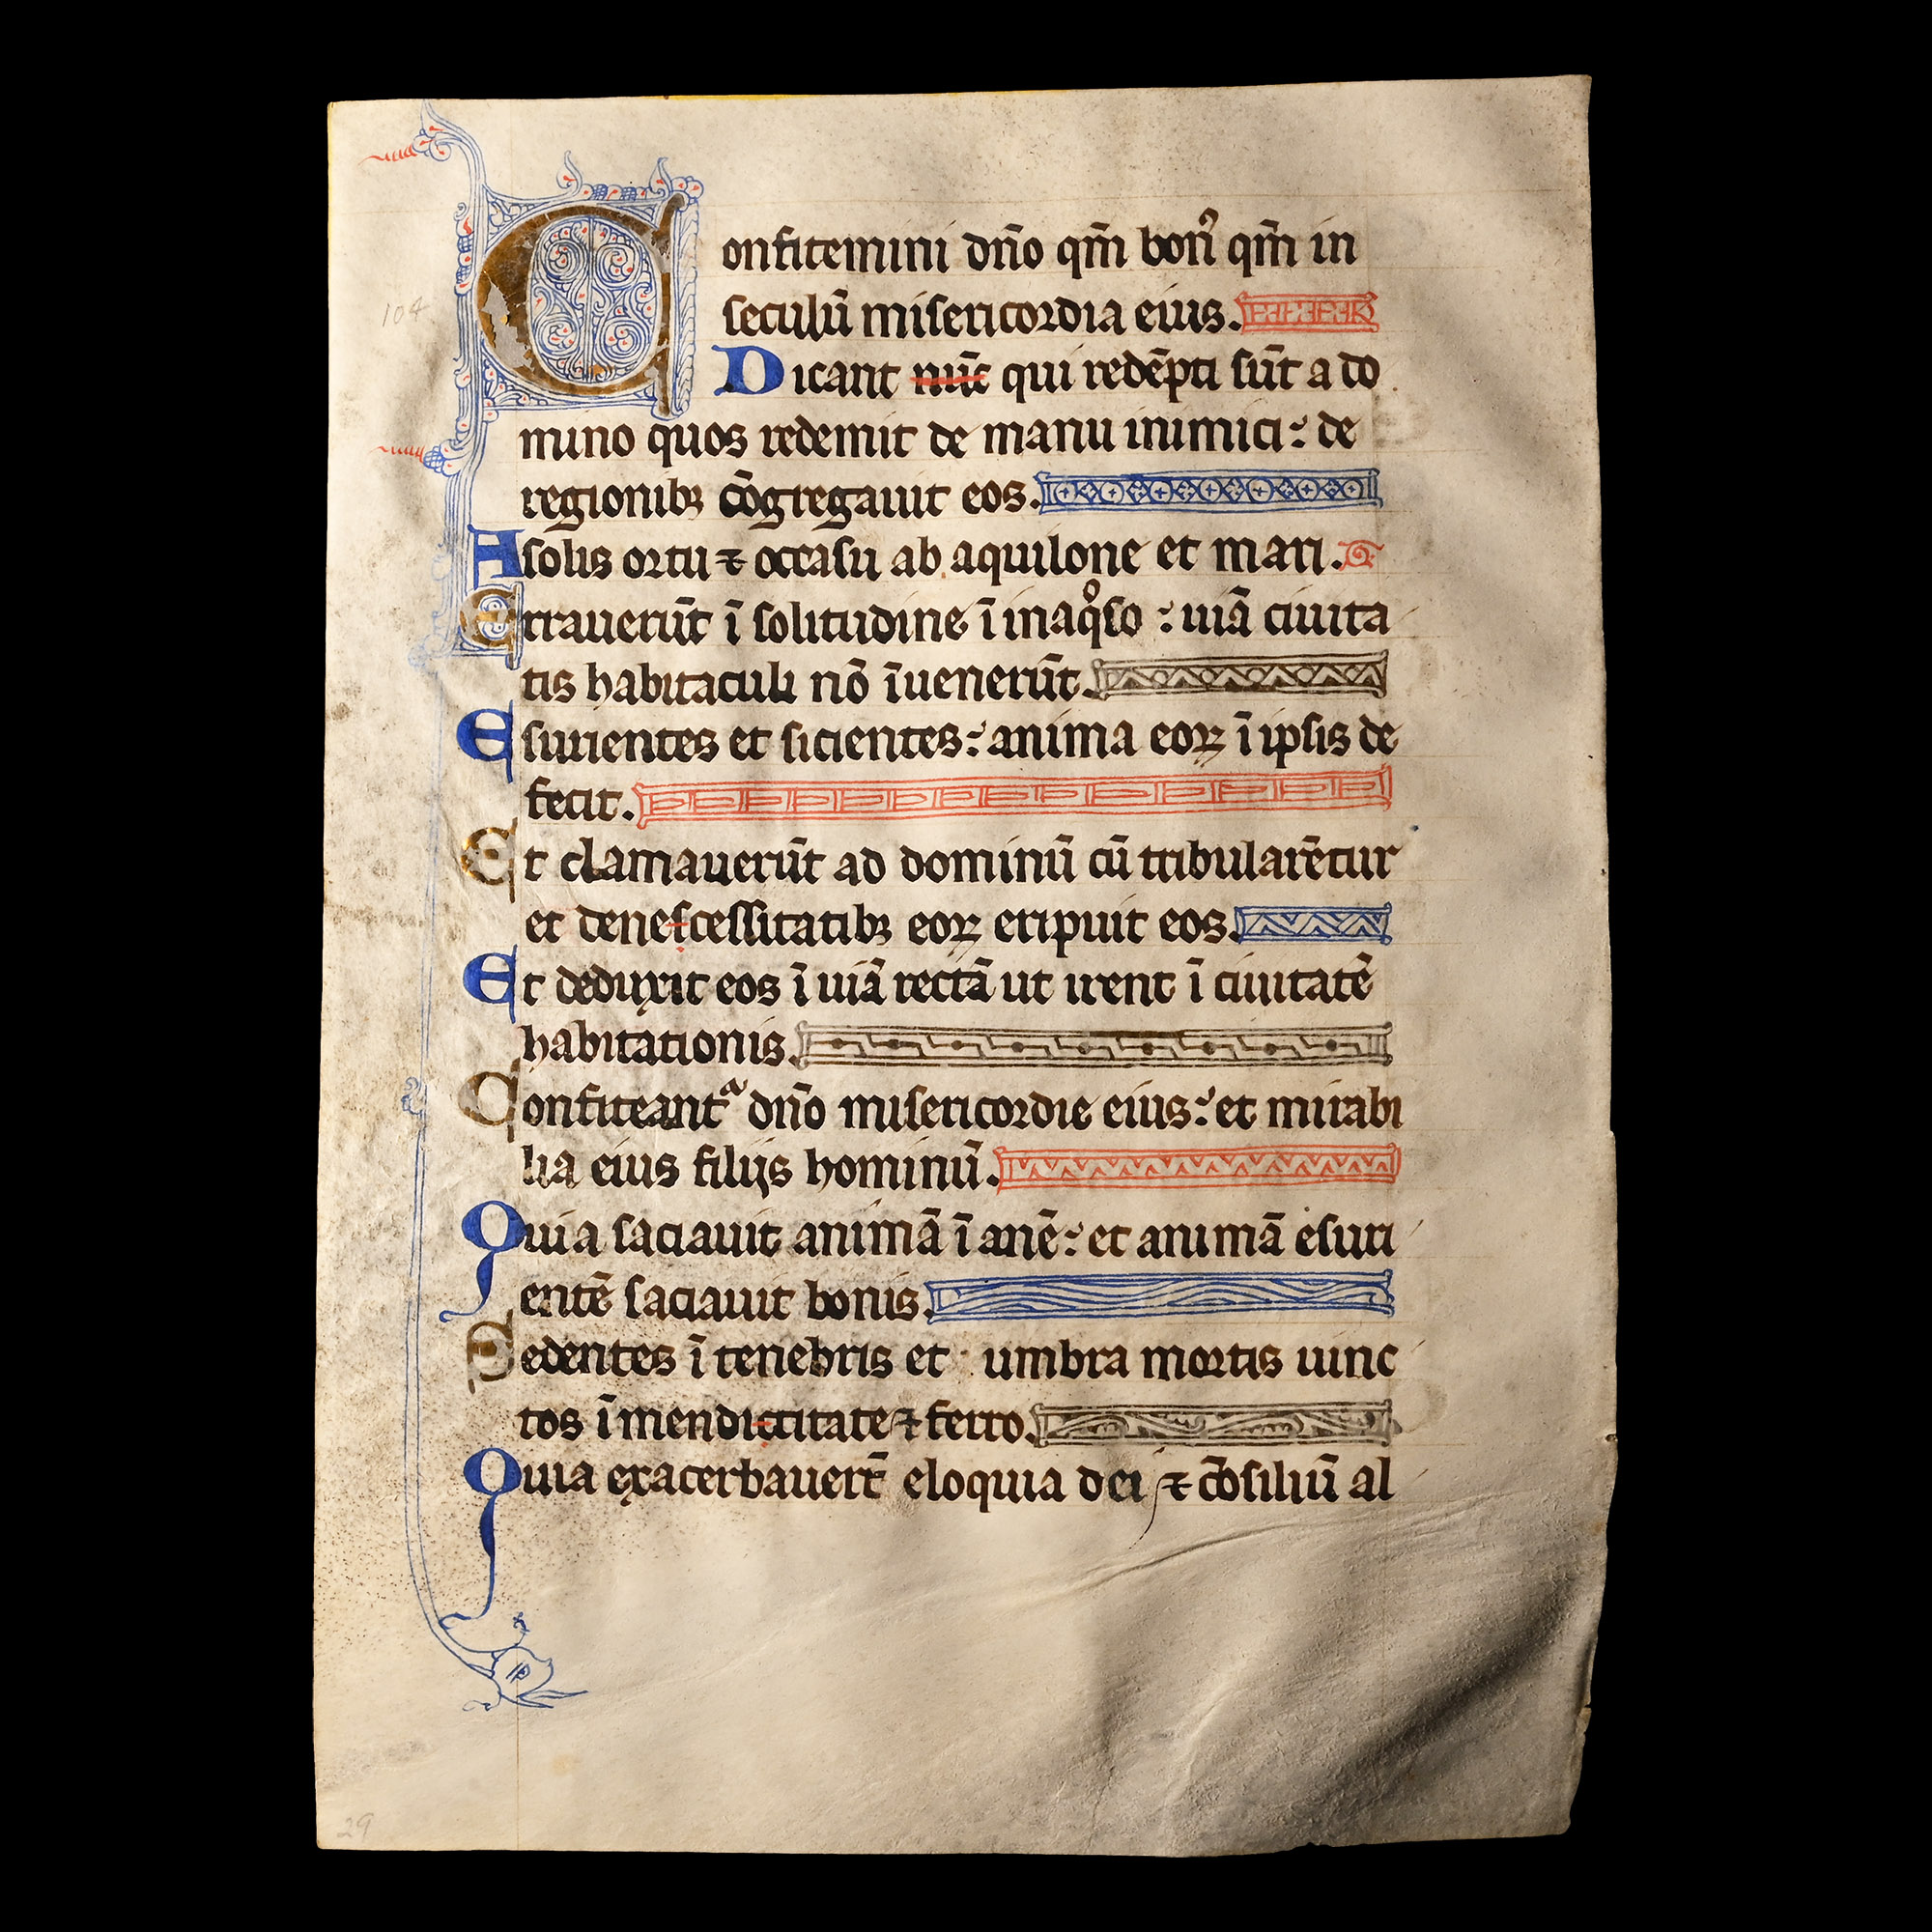 Confitemini dn̄o qm̄ bonꝰ qm̄ in
seculū misericordia eius.
Dicant nūc qui redēpti sūt a do
mino quos redemit de manu inimici: de
regionibꝫ cōgregauit eos.
A solis ortu ⁊ occasu ab aquilone et mari.
Errauerūt ī solitudine ī inaqͦso: uiā ciuita
tis habitaculi nō īuenerūt.
Esurientes et sicientes: anima eoꝝ ī ipsis de
fecit.
Et clamauerūt ad dominū cū tribularētur
et denescessitatibꝫ eoꝝ eripuit eos.
Et deduxit eos ī uiā rectā ut irent ī ciuitatē
habitationis.
Confiteantᷓ dn̄o misericordie eius: et mirabi
lia eius filijs hominū.
Quia saciauit animā ī anē: et animā esuri
entē saciauit bonis.
Sedentes ī tenebris et umbra mortis uinc
tos ī mendictitate ⁊ ferro.
Quia exacerbauer̄t eloquia dei ⁊ cōsiliū al
104
29